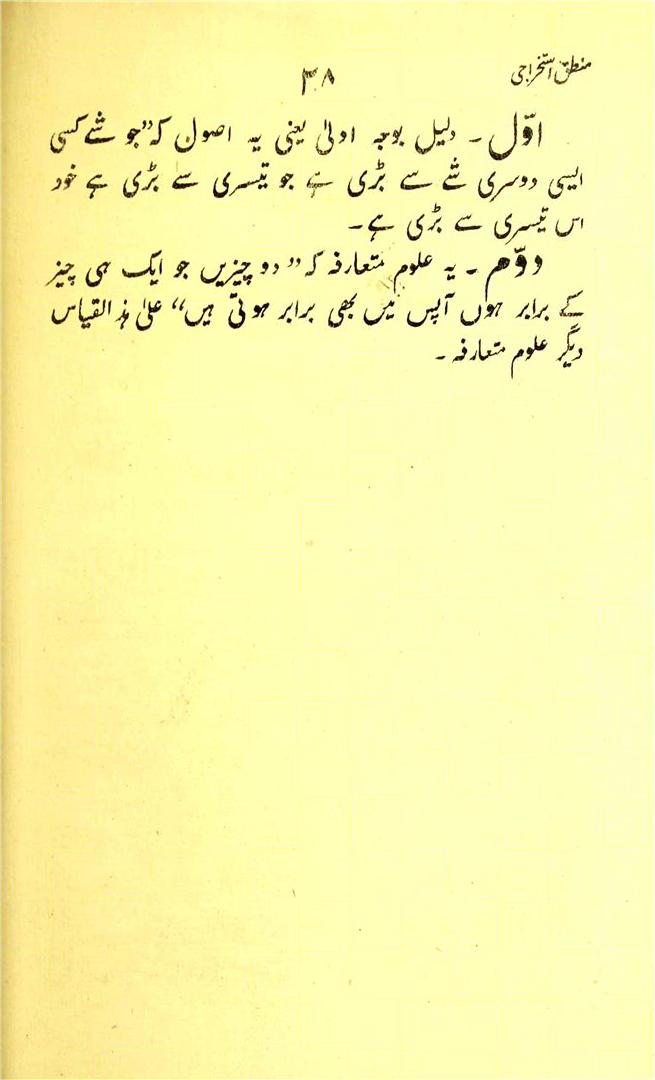 منطق استخراجی
۳۸
اوّل ۔ دلیل بوجہ اولیٰ یعنی یہ اصول کہ ”جو شے کسی
ایسی دوسری شے سے بڑی ہے جو تیسری سے بڑی ہے خود
اس تیسری سے بڑی ہے۔
دوّم ۔ یہ علوم متعارفہ کہ ”دو چیزیں جو ایک ہی چیز
کے برابر ہوں آپس میں بھی برابر ہوتی ہیں“ علیٰ ہذ القیاس
دیگر علوم متعارفہ ۔